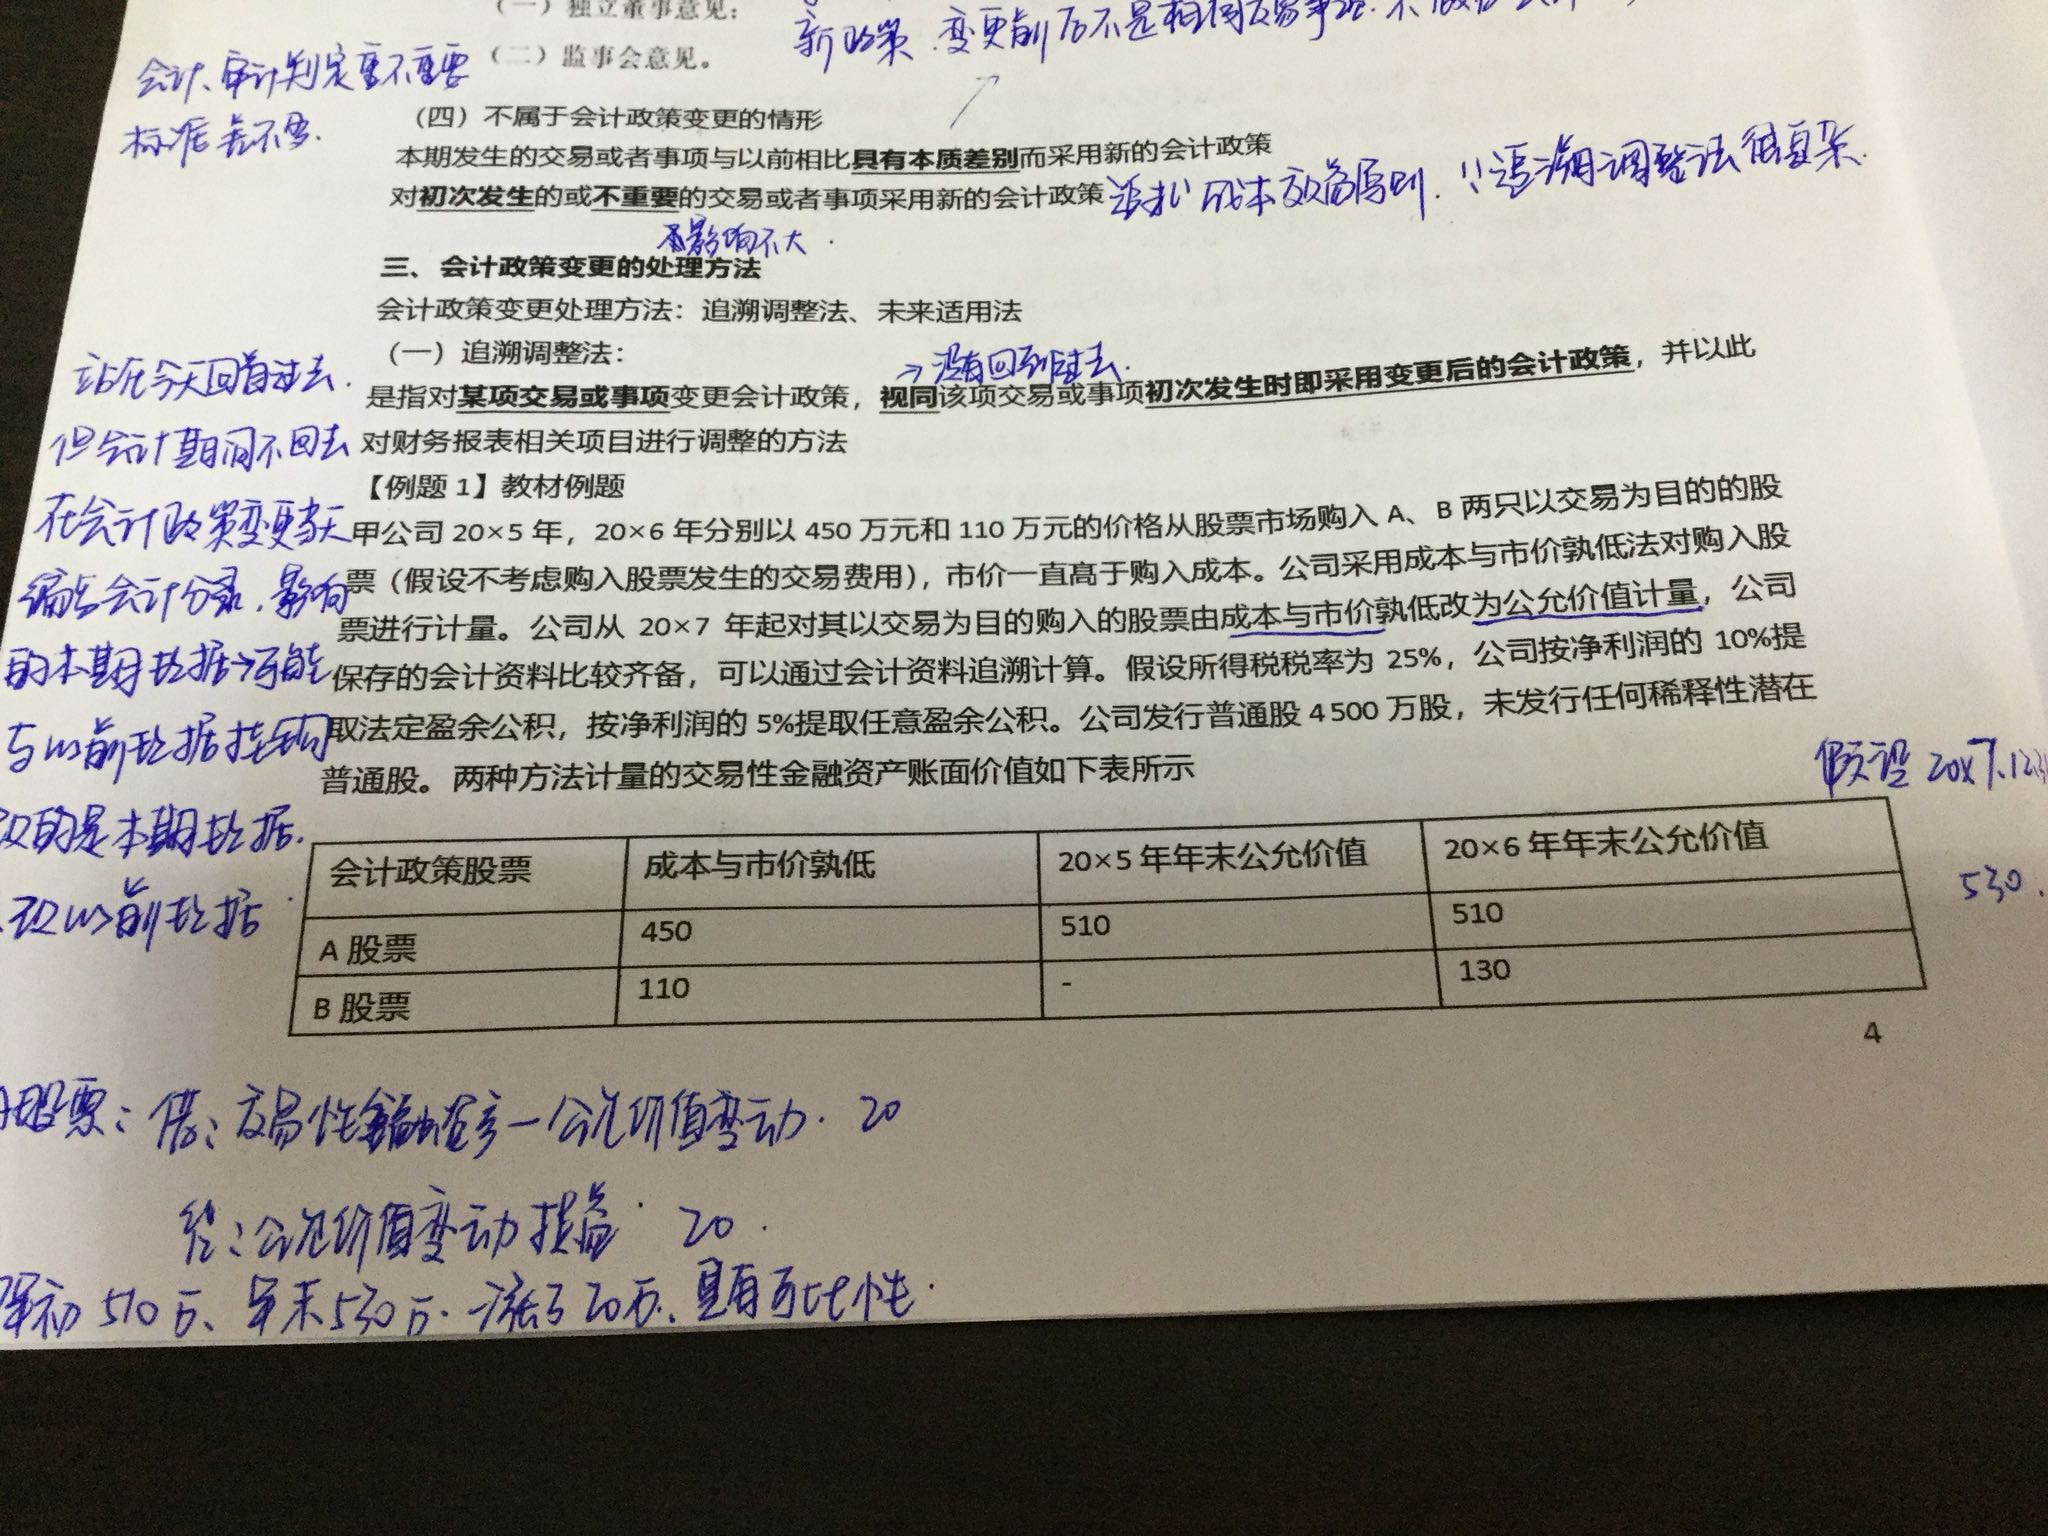 （一）独立董事意见：
新政策、变更前后不是相同交易事项.不
（二）监事会意见。
会计、审计判定重不重要
标准差不多.
（四）不属于会计政策变更的情形
本期发生的交易或者事项与以前相比具有本质差别而采用新的会计政策
对初次发生的或不重要的交易或者事项采用新的会计政策
成本效益原则. ∵追溯调整法很复杂.
影响不大.
三、会计政策变更的处理方法
会计政策变更处理方法：追溯调整法、未来适用法
（一）追溯调整法：
→没有回到过去.
是指对某项交易或事项变更会计政策，视同该项交易或事项初次发生时即采用变更后的会计政策，并以此
对财务报表相关项目进行调整的方法
站在今天回首过去.
但会计期间不回去
在会计政策变更当天
编号会计分录.影响
的本期数据→可能
与以前数据挂钩
改的是本期数据.
改以前数据
【例题 1】教材例题
甲公司 20×5 年，20×6 年分别以 450 万元和 110 万元的价格从股票市场购入 A、B 两只以交易为目的的股
票（假设不考虑购入股票发生的交易费用），市价一直高于购入成本。公司采用成本与市价孰低法对购入股
票进行计量。公司从 20×7 年起对其以交易为目的购入的股票由成本与市价孰低改为公允价值计量，公司
保存的会计资料比较齐备，可以通过会计资料追溯计算。假设所得税税率为 25%，公司按净利润的 10%提
取法定盈余公积，按净利润的 5%提取任意盈余公积。公司发行普通股 4 500 万股，未发行任何稀释性潜在
普通股。两种方法计量的交易性金融资产账面价值如下表所示
假设 20×7.12.31
会计政策股票 成本与市价孰低 20×5 年年末公允价值 20×6 年年末公允价值
A 股票 450 510 510 530.
B 股票 110 - 130
4
A股票：借：交易性金融资产—公允价值变动. 20
贷：公允价值变动损益. 20.
年初 510万、年末530万.涨了20万、具有可比性.